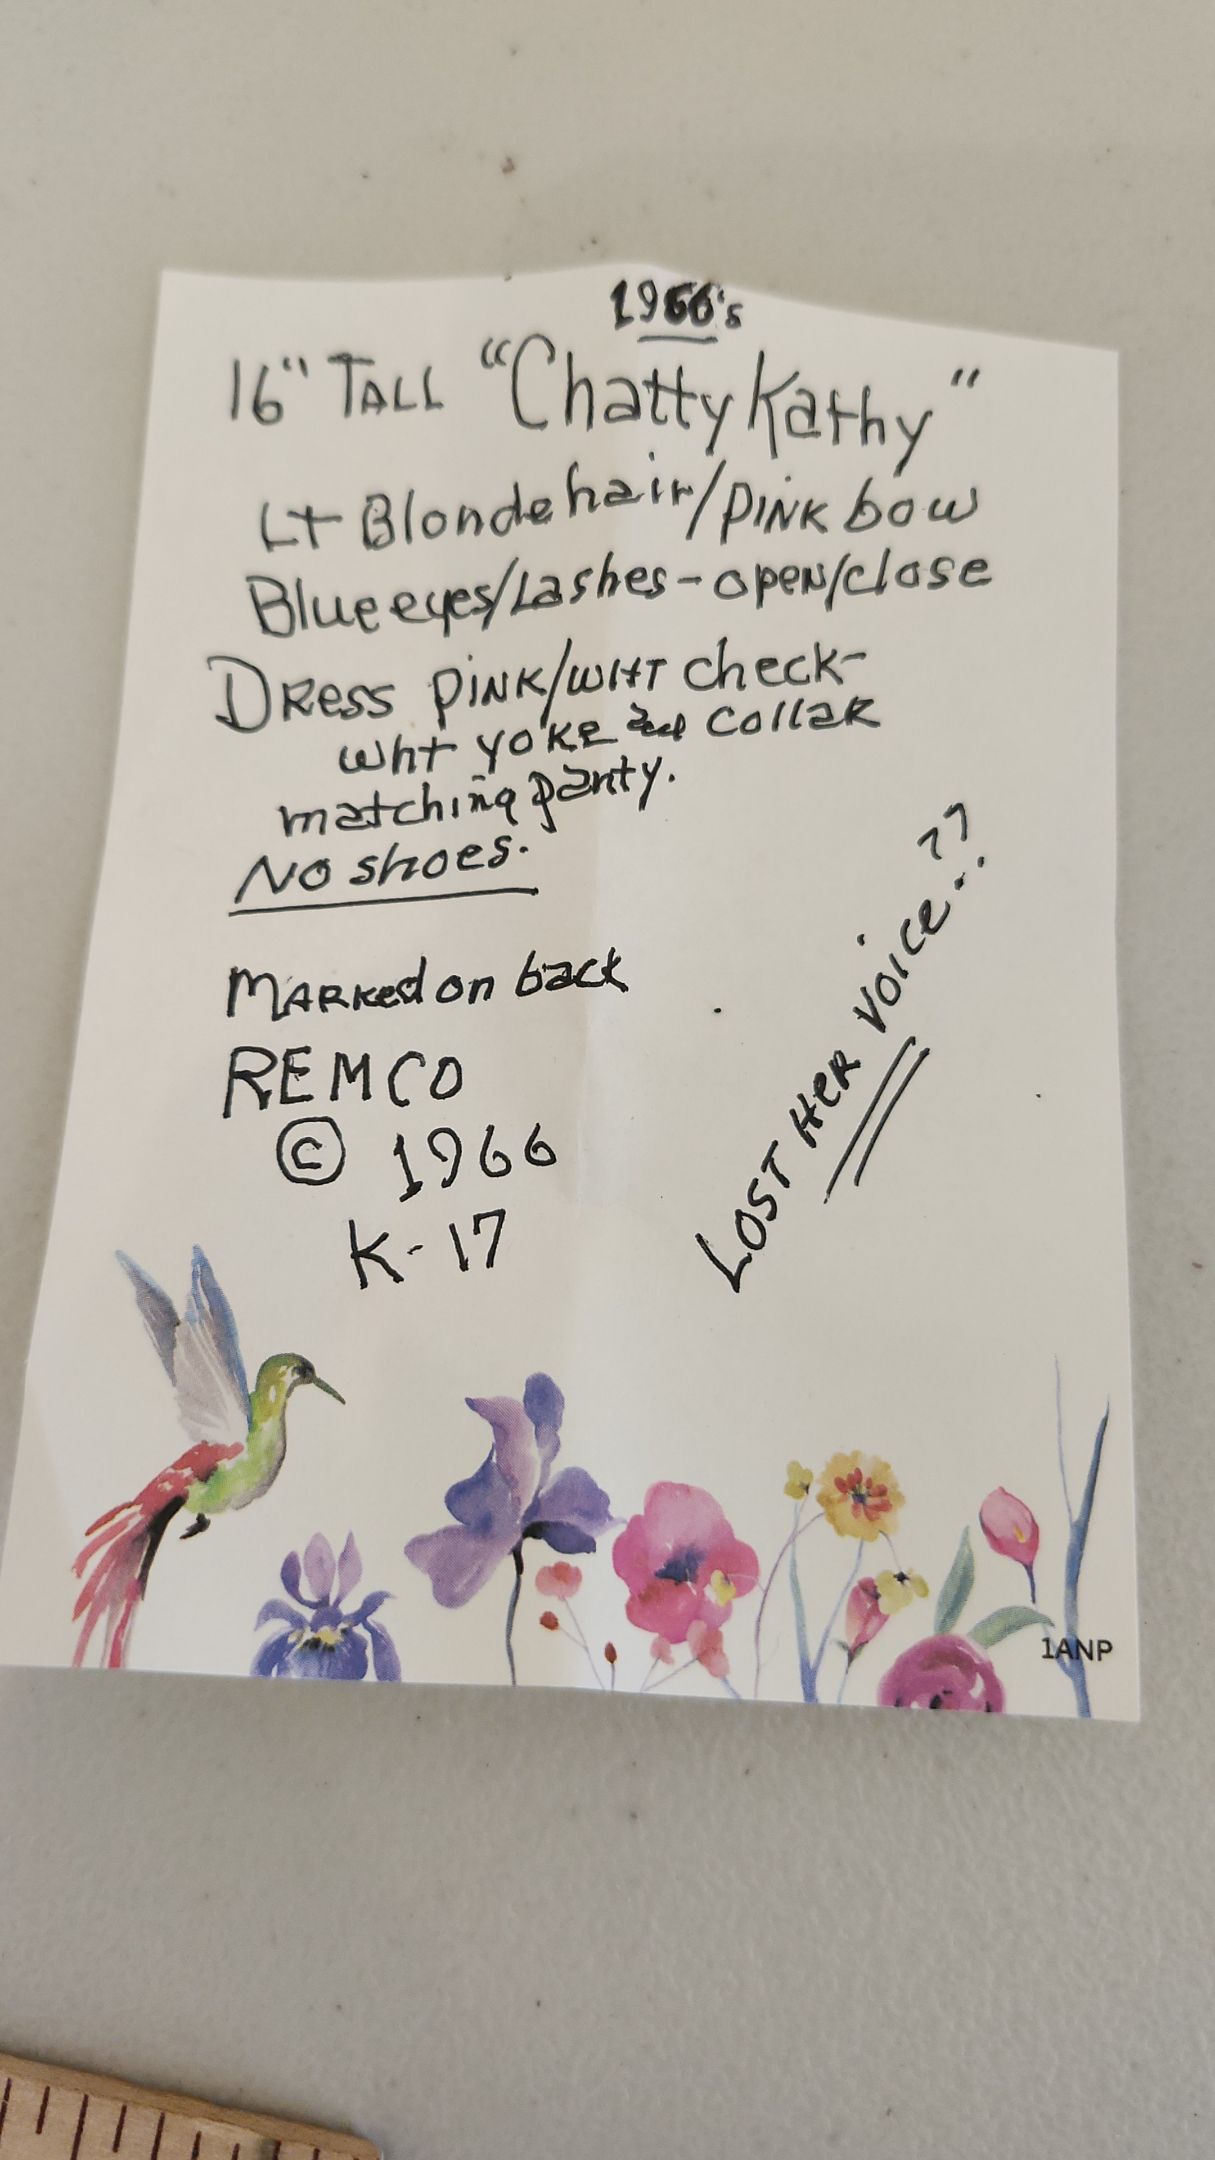 1960's
16" TALL "Chatty Kathy"
Lt Blonde hair/PINK bow
Blue eyes/Lashes - open/close
DRess PINK/WHT check-
wht yoke and collar
matching panty.
NO shoes.
MARKed on back
REMCO
© 1966
K-17
LOST HeR VOICE..??
1ANP